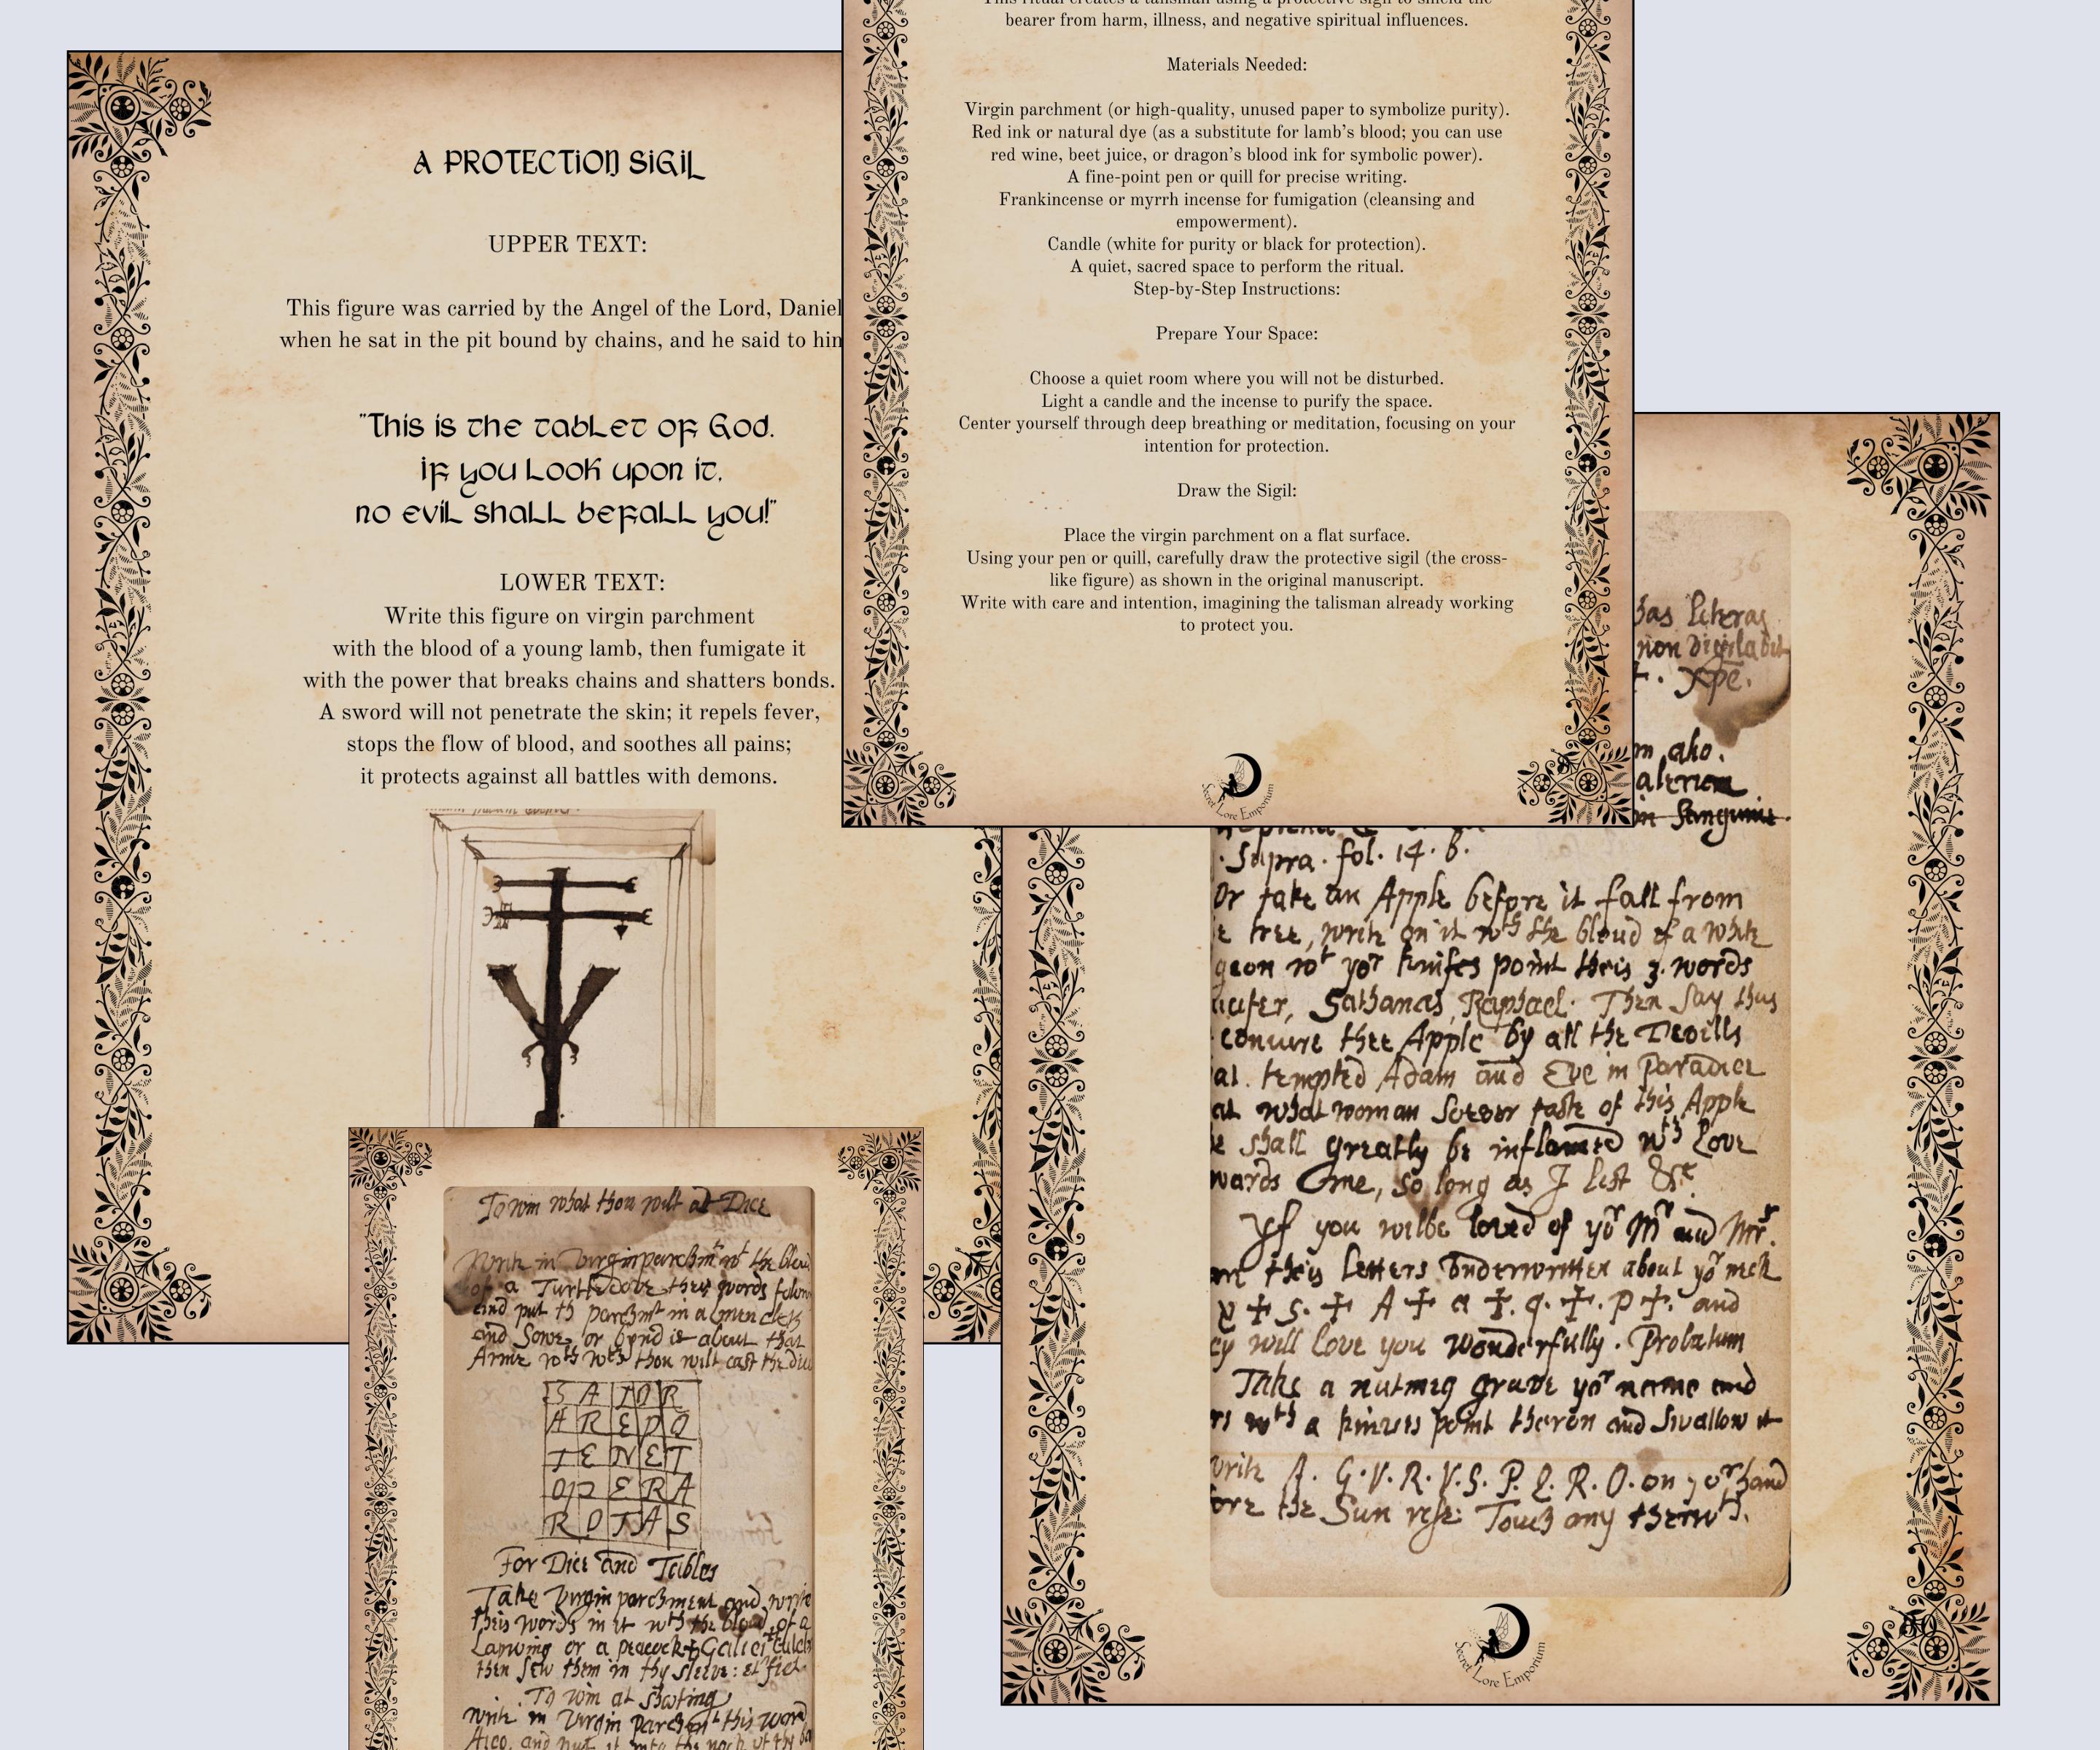 A PROTECTION SIGIL
UPPER TEXT:
This figure was carried by the Angel of the Lord, Daniel
when he sat in the pit bound by chains, and he said to
"This is the tablet of God.
If you look upon it,
no evil shall befall you!"
LOWER TEXT:
Write this figure on virgin parchment
with the blood of a young lamb, then fumigate it
with the power that breaks chains and shatters bonds.
A sword will not penetrate the skin; it repels fever,
stops the flow of blood, and soothes all pains;
it protects against all battles with demons.
This ritual creates a talisman using a protective sigil to shield the
bearer from harm, illness, and negative spiritual influences.
Materials Needed:
Virgin parchment (or high-quality, unused paper to symbolize purity).
Red ink or natural dye (as a substitute for lamb's blood; you can use
red wine, beet juice, or dragon's blood ink for symbolic power).
A fine-point pen or quill for precise writing.
Frankincense or myrrh incense for fumigation (cleansing and
empowerment).
Candle (white for purity or black for protection).
A quiet, sacred space to perform the ritual.
Step-by-Step Instructions:
Prepare Your Space:
Choose a quiet room where you will not be disturbed.
Light a candle and the incense to purify the space.
Center yourself through deep breathing or meditation, focusing on your
intention for protection.
Draw the Sigil:
Place the virgin parchment on a flat surface.
Using your pen or quill, carefully draw the protective sigil (the cross-
like figure) as shown in the original manuscript.
Write with care and intention, imagining the talisman already working
to protect you.
Secret Lore Emporium
36
has literas
non
xpe.
Supra. fol. 14. b.
Or take an Apple before it fall from
tree, write on it wth the bloud of a white
wt yor knifes point theis 3. words
Sathanas, Raphael. Then say thus
coniure thee Apple by all the Devills
tempted Adam and Eve in paradice
what woman soever taste of this Apple
shall greatly be inflamed wth love
wards me, so long as I list &c.
Yf you wilbe loved of yor Mr and Mrs.
theis letters underwritten about yor neck
+ S. + A + a +. q. +. p +. and
will love you wonderfully. Probatum
Take a nutmeg grave yor name and
wth a knives point theron and swallow it
write A. G. V. R. V. S. P. Q. R. O. on yor hand
the Sun rise: Touch any therwth.
Secret Lore Emporium
50
To win what thou wilt at Dice
Write in virgin parchmt wt the bloud
of a Turtledove theis words
and put th parchmt in a
and Sowe, or bynd it about that
Arme wth wch thou wilt cast the
SATOR
AREPO
TENET
OPERA
ROTAS
For Dice and Tables
Take virgin parchment and write
theis words in it wth the bloud of a
Lapwing or a peacock +
then sew them in thy sleeve: et fiet
To win at shoting
write in virgin parchmt this word
and put it into the nock of thy